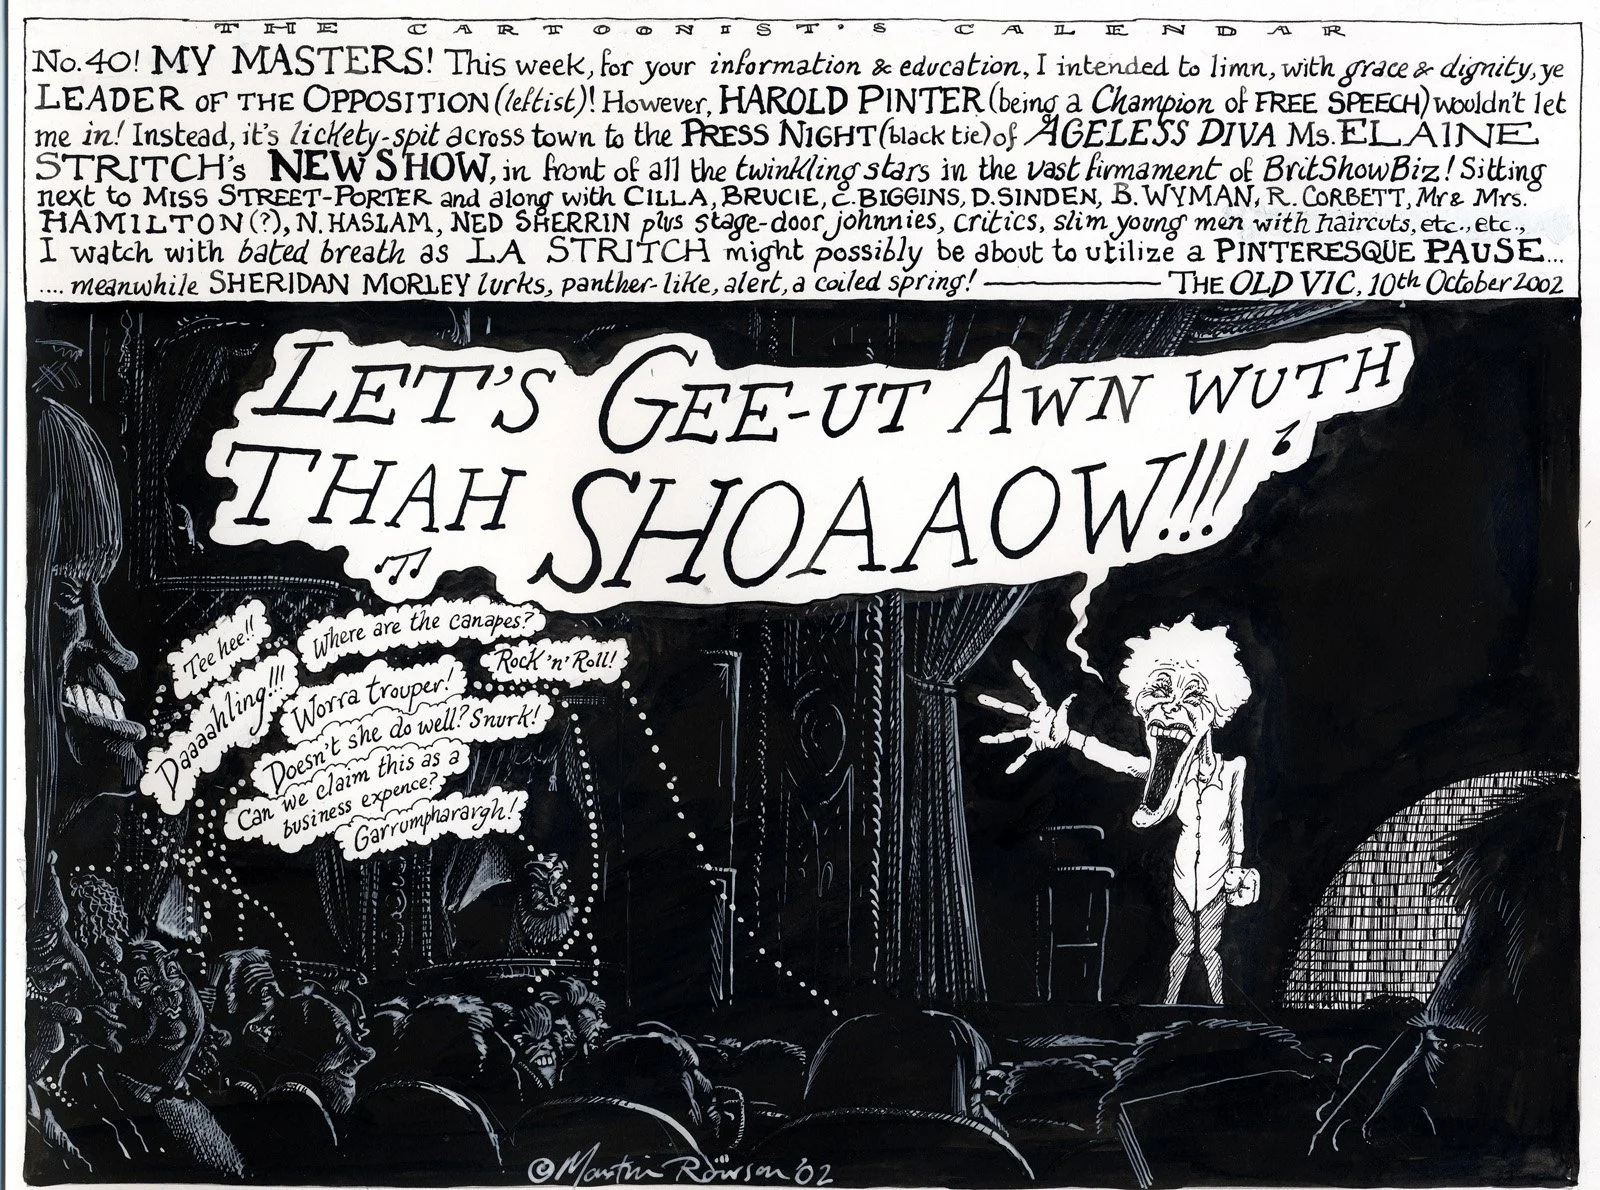 THE CARTOONIST'S CALENDAR
No. 40! MY MASTERS! This week, for your information & education, I intended to limn, with grace & dignity, ye
LEADER OF THE OPPOSITION (leftist)! However, HAROLD PINTER (being a Champion of FREE SPEECH) wouldn't let
me in! Instead, it's lickety-spit across town to the PRESS NIGHT (black tie) of AGELESS DIVA Ms. ELAINE
STRITCH's NEW SHOW, in front of all the twinkling stars in the vast firmament of BritShowBiz! Sitting
next to MISS STREET-PORTER and along with CILLA, BRUCIE, C. BIGGINS, D. SINDEN, B. WYMAN, R. CORBETT, Mr & Mrs.
HAMILTON (?), N. HASLAM, NED SHERRIN plus stage-door johnnies, critics, slim young men with haircuts, etc., etc.,
I watch with bated breath as LA STRITCH might possibly be about to utilize a PINTERESQUE PAUSE...
.... meanwhile SHERIDAN MORLEY lurks, panther-like, alert, a coiled spring! — THE OLD VIC, 10th October 2002
LET'S GEE-UT AWN WUTH
THAH SHOAAOW!!!
Tee hee!!
Where are the canapes?
Rock 'n' Roll!
Daaaahling!!!
Worra trouper!
Doesn't she do well? Snurk!
Can we claim this as a
business expence?
Garrumpharargh!
© Martin Rowson '02